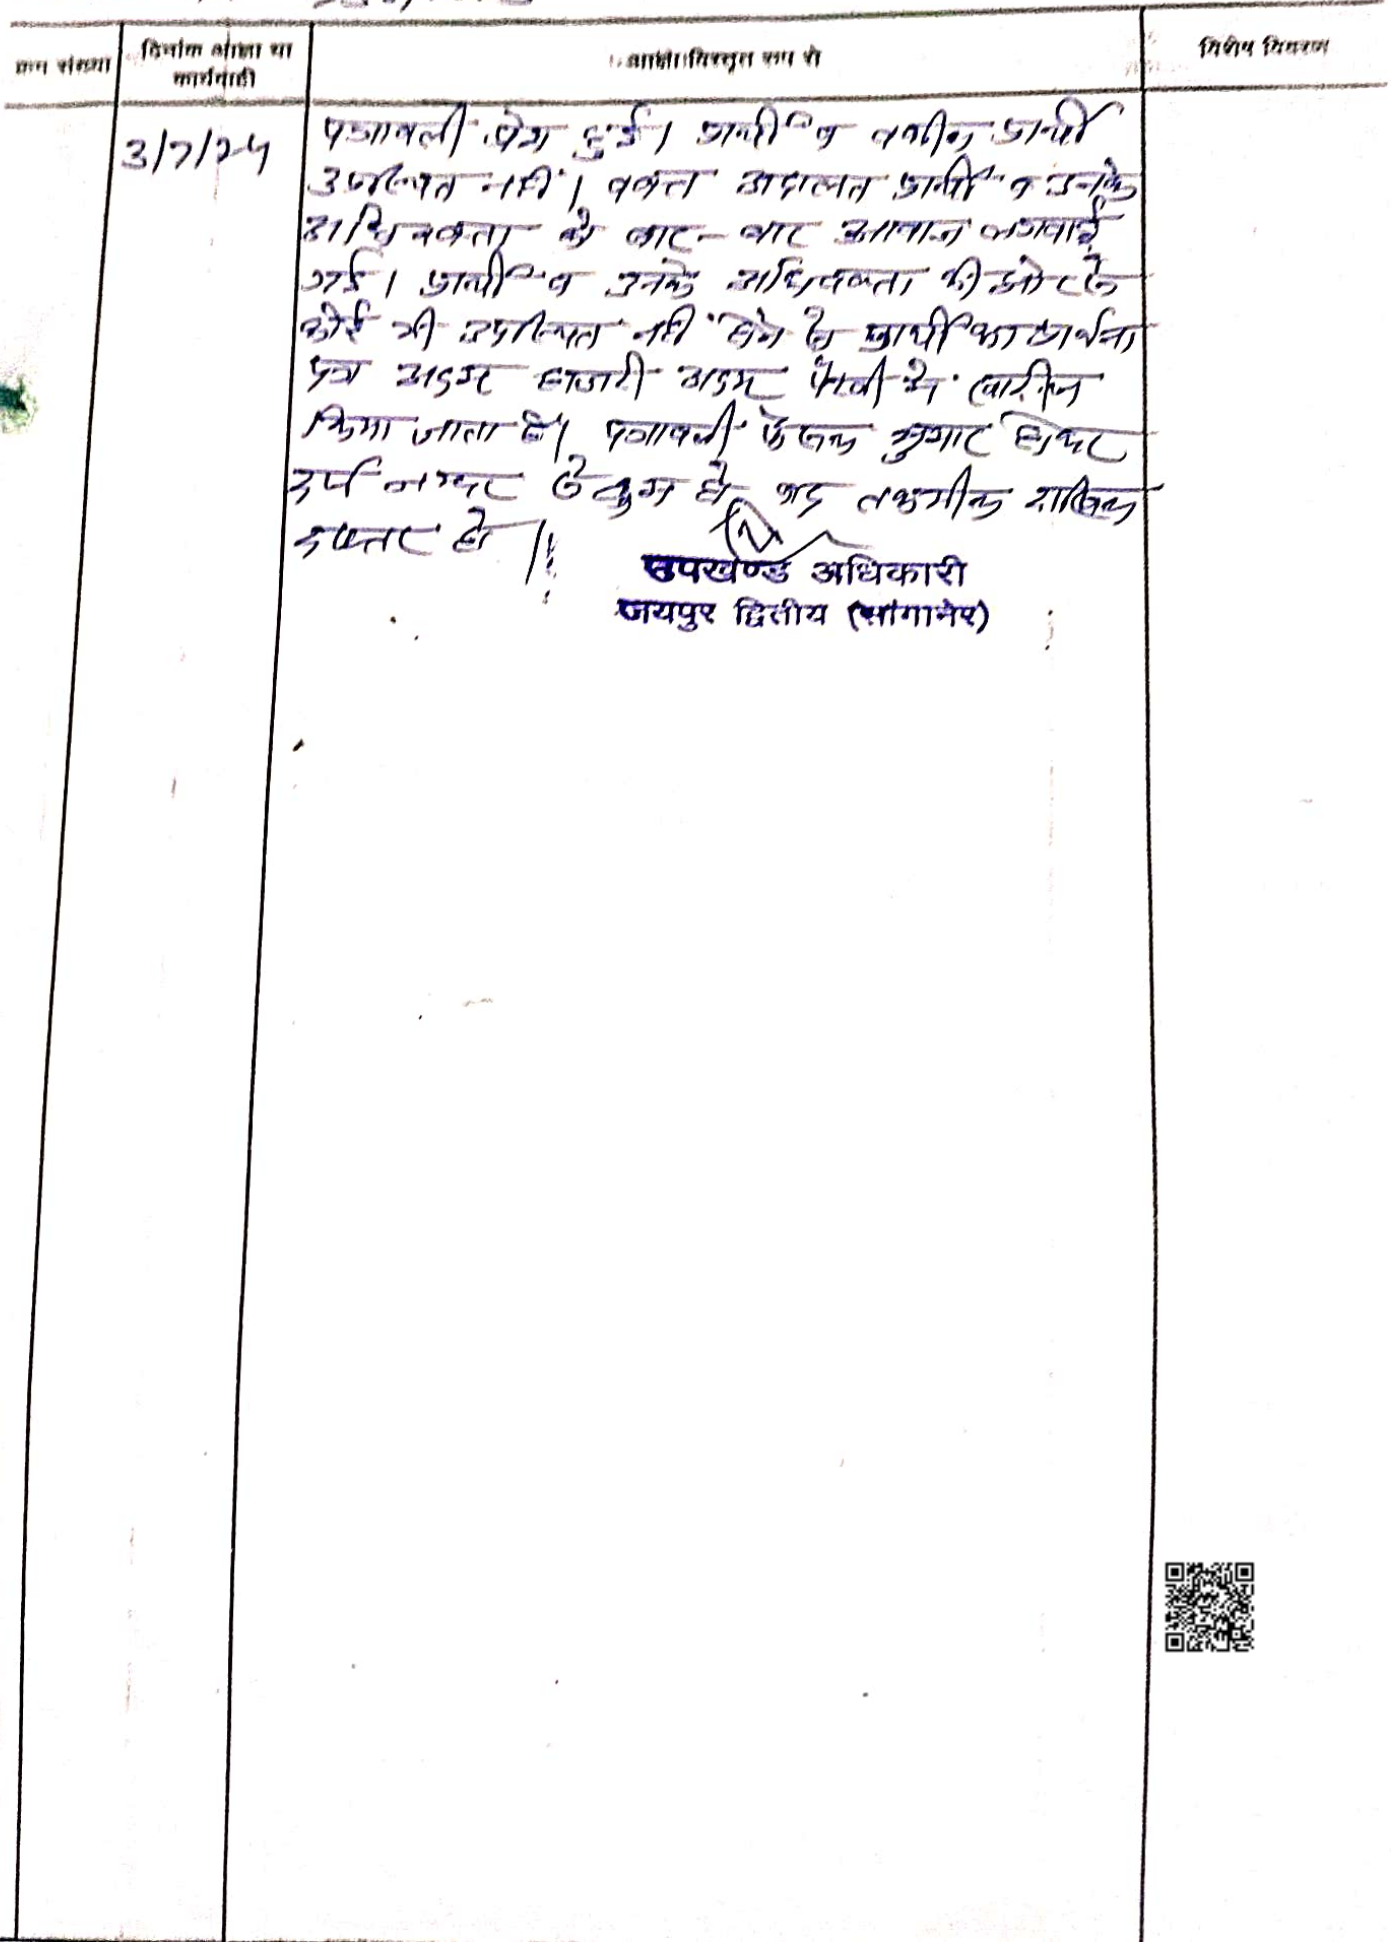 क्रम संख्या
दिनांक आज्ञा या
कार्यवाही
आज्ञा विस्तृत रूप से
विशेष विवरण
3/7/24
पत्रावली पेश हुई। प्रार्थी व वकील प्रार्थी
उपस्थित नहीं। वक्त अदालत प्रार्थी व उनके
अधिवक्ता को बार-बार आवाज लगवाई
गई। प्रार्थी व उनके अधिवक्ता की ओर से
कोई भी उपस्थित नहीं होने से प्रार्थी का प्रार्थना
पत्र अदम हाजरी अदम पैरवी में खारिज
किया जाता है। पत्रावली फैसल शुमार होकर
दर्ज नम्बर से कम हो बाद तकमील दाखिल
दफ्तर हो।
उपखण्ड अधिकारी
जयपुर द्वितीय (सांगानेर)